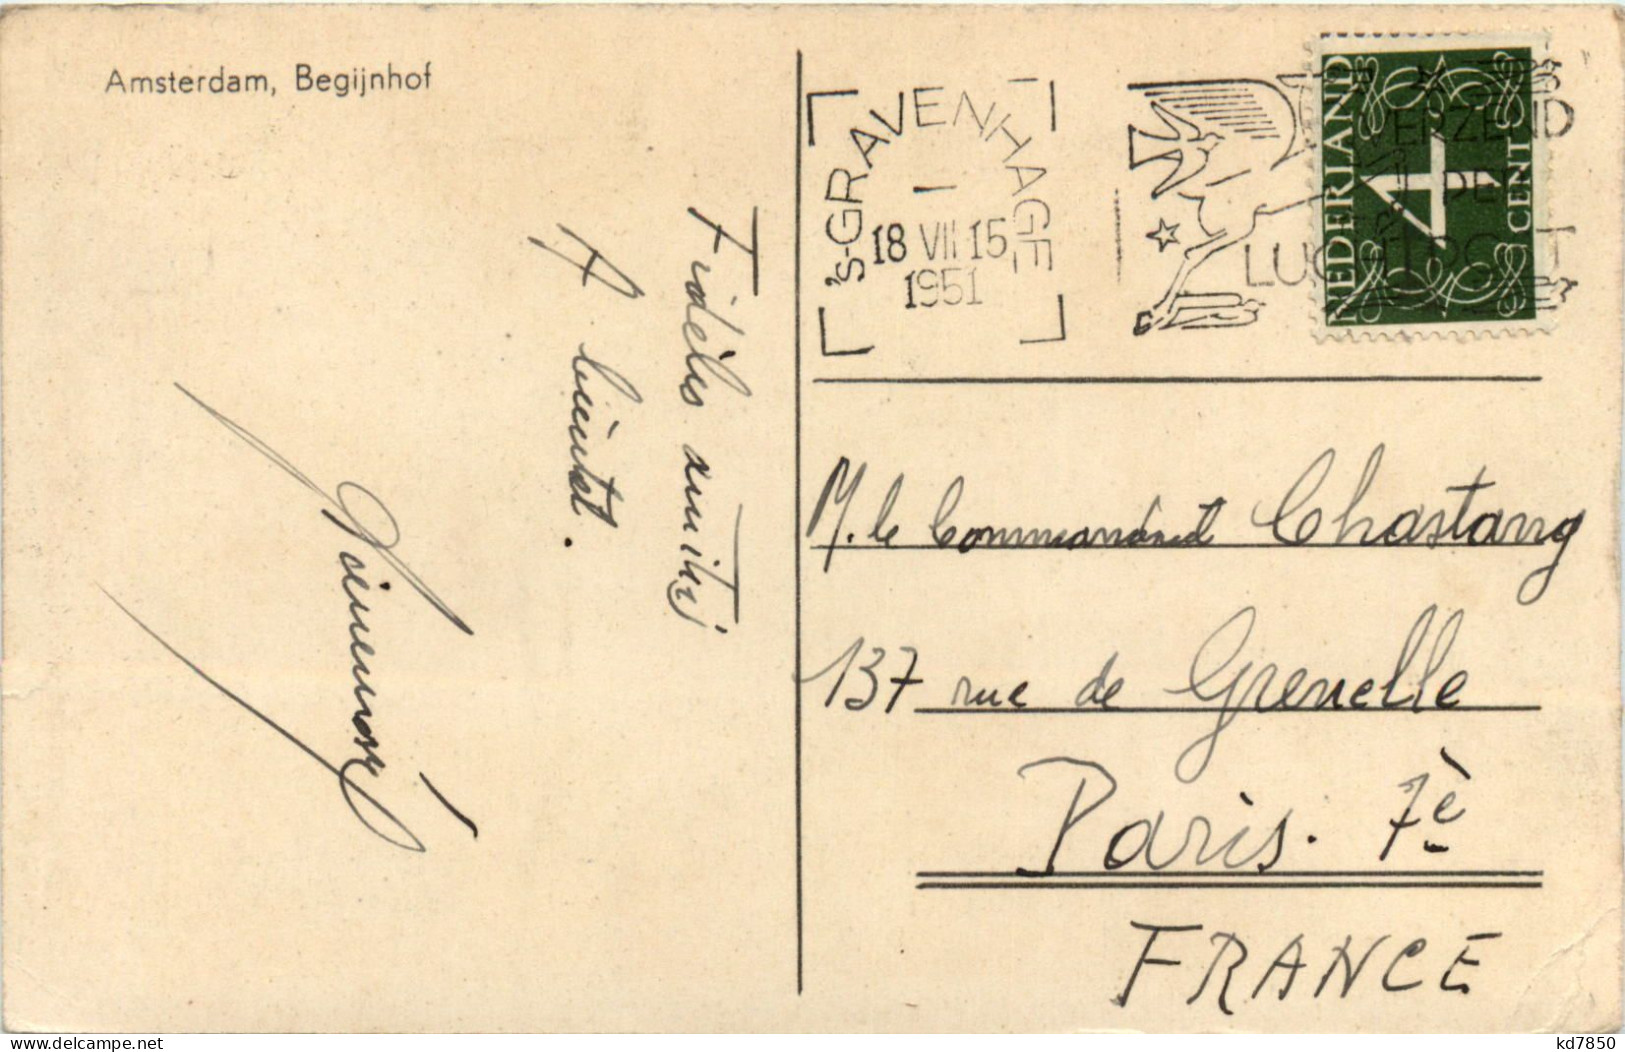 Amsterdam, Begijnhof
Fidèles amitiés
A bientôt.
's-GRAVENHAGE
18 VII 15
1951
VERZEND
PER
LUCHTPOST
NEDERLAND
4
CENT
M. le Commandant Chastang
137 rue de Grenelle
Paris. 7è
FRANCE
delcampe.net
kd7850